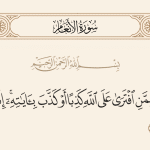 سُورَةُ الأَنْعَام
بِسْمِ اللَّهِ الرَّحْمَنِ الرَّحِيمِ
مِمَّنِ ٱفْتَرَىٰ عَلَى ٱللَّهِ كَذِبًا أَوْ كَذَّبَ بِـَٔايَـٰتِهِۦٓ ۗ